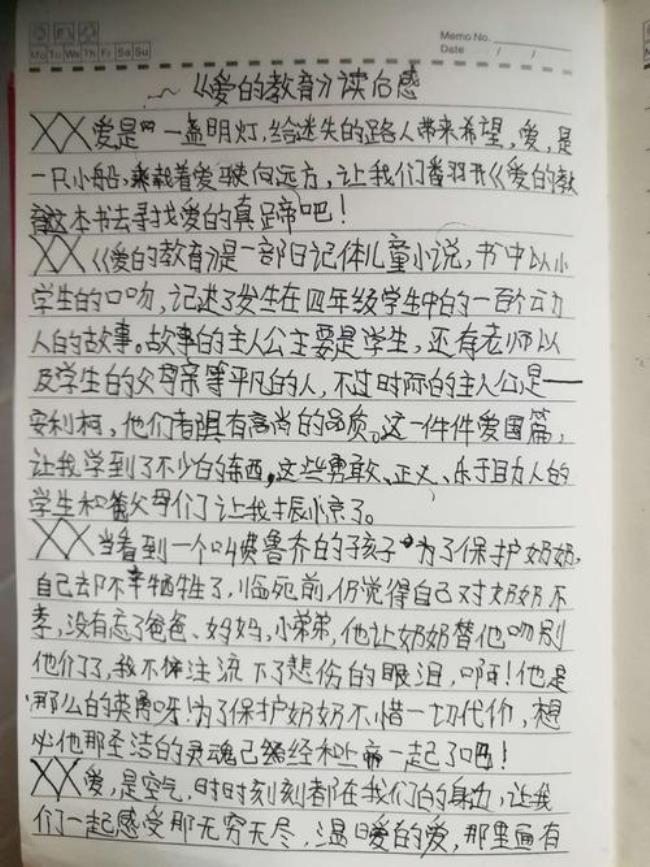 Mo Tu We Th Fr Sa Su
Memo No.
Date / /
《爱的教育》读后感
爱是一盏明灯,给迷失的路人带来希望,爱,是
一只小船,乘载着爱驶向远方,让我们翻开《爱的教
育》这本书去寻找爱的真蹄吧!
《爱的教育》是一部日记体儿童小说,书中以小
学生的口吻,记述了发生在四年级学生中的一百个动
人的故事。故事的主人公主要是学生,还有老师以
及学生的父母亲等平凡的人,不过时际的主人公是——
安利柯,他们都具有高尚的品质。这一件件爱国篇,
让我学到了不少的东西,这些勇敢、正义、乐于助人的
学生和父母们了让我振惊了。
当看到一个叫费鲁乔的孩子为了保护奶奶,
自己却不幸牺牲了,临死前,仍觉得自己对奶奶不
孝,没有忘了爸爸、妈妈,小弟弟,他让奶奶替他吻别
他们了,我不禁注流下了悲伤的眼泪,啊!他是
那么的英勇呀!为了保护奶奶不惜一切代价,想
必他那圣洁的灵魂已经和上帝一起了吧!
爱,是空气,时时刻刻都在我们的身边,让我
们一起感受那无穷无尽,温暖的爱,那里面有